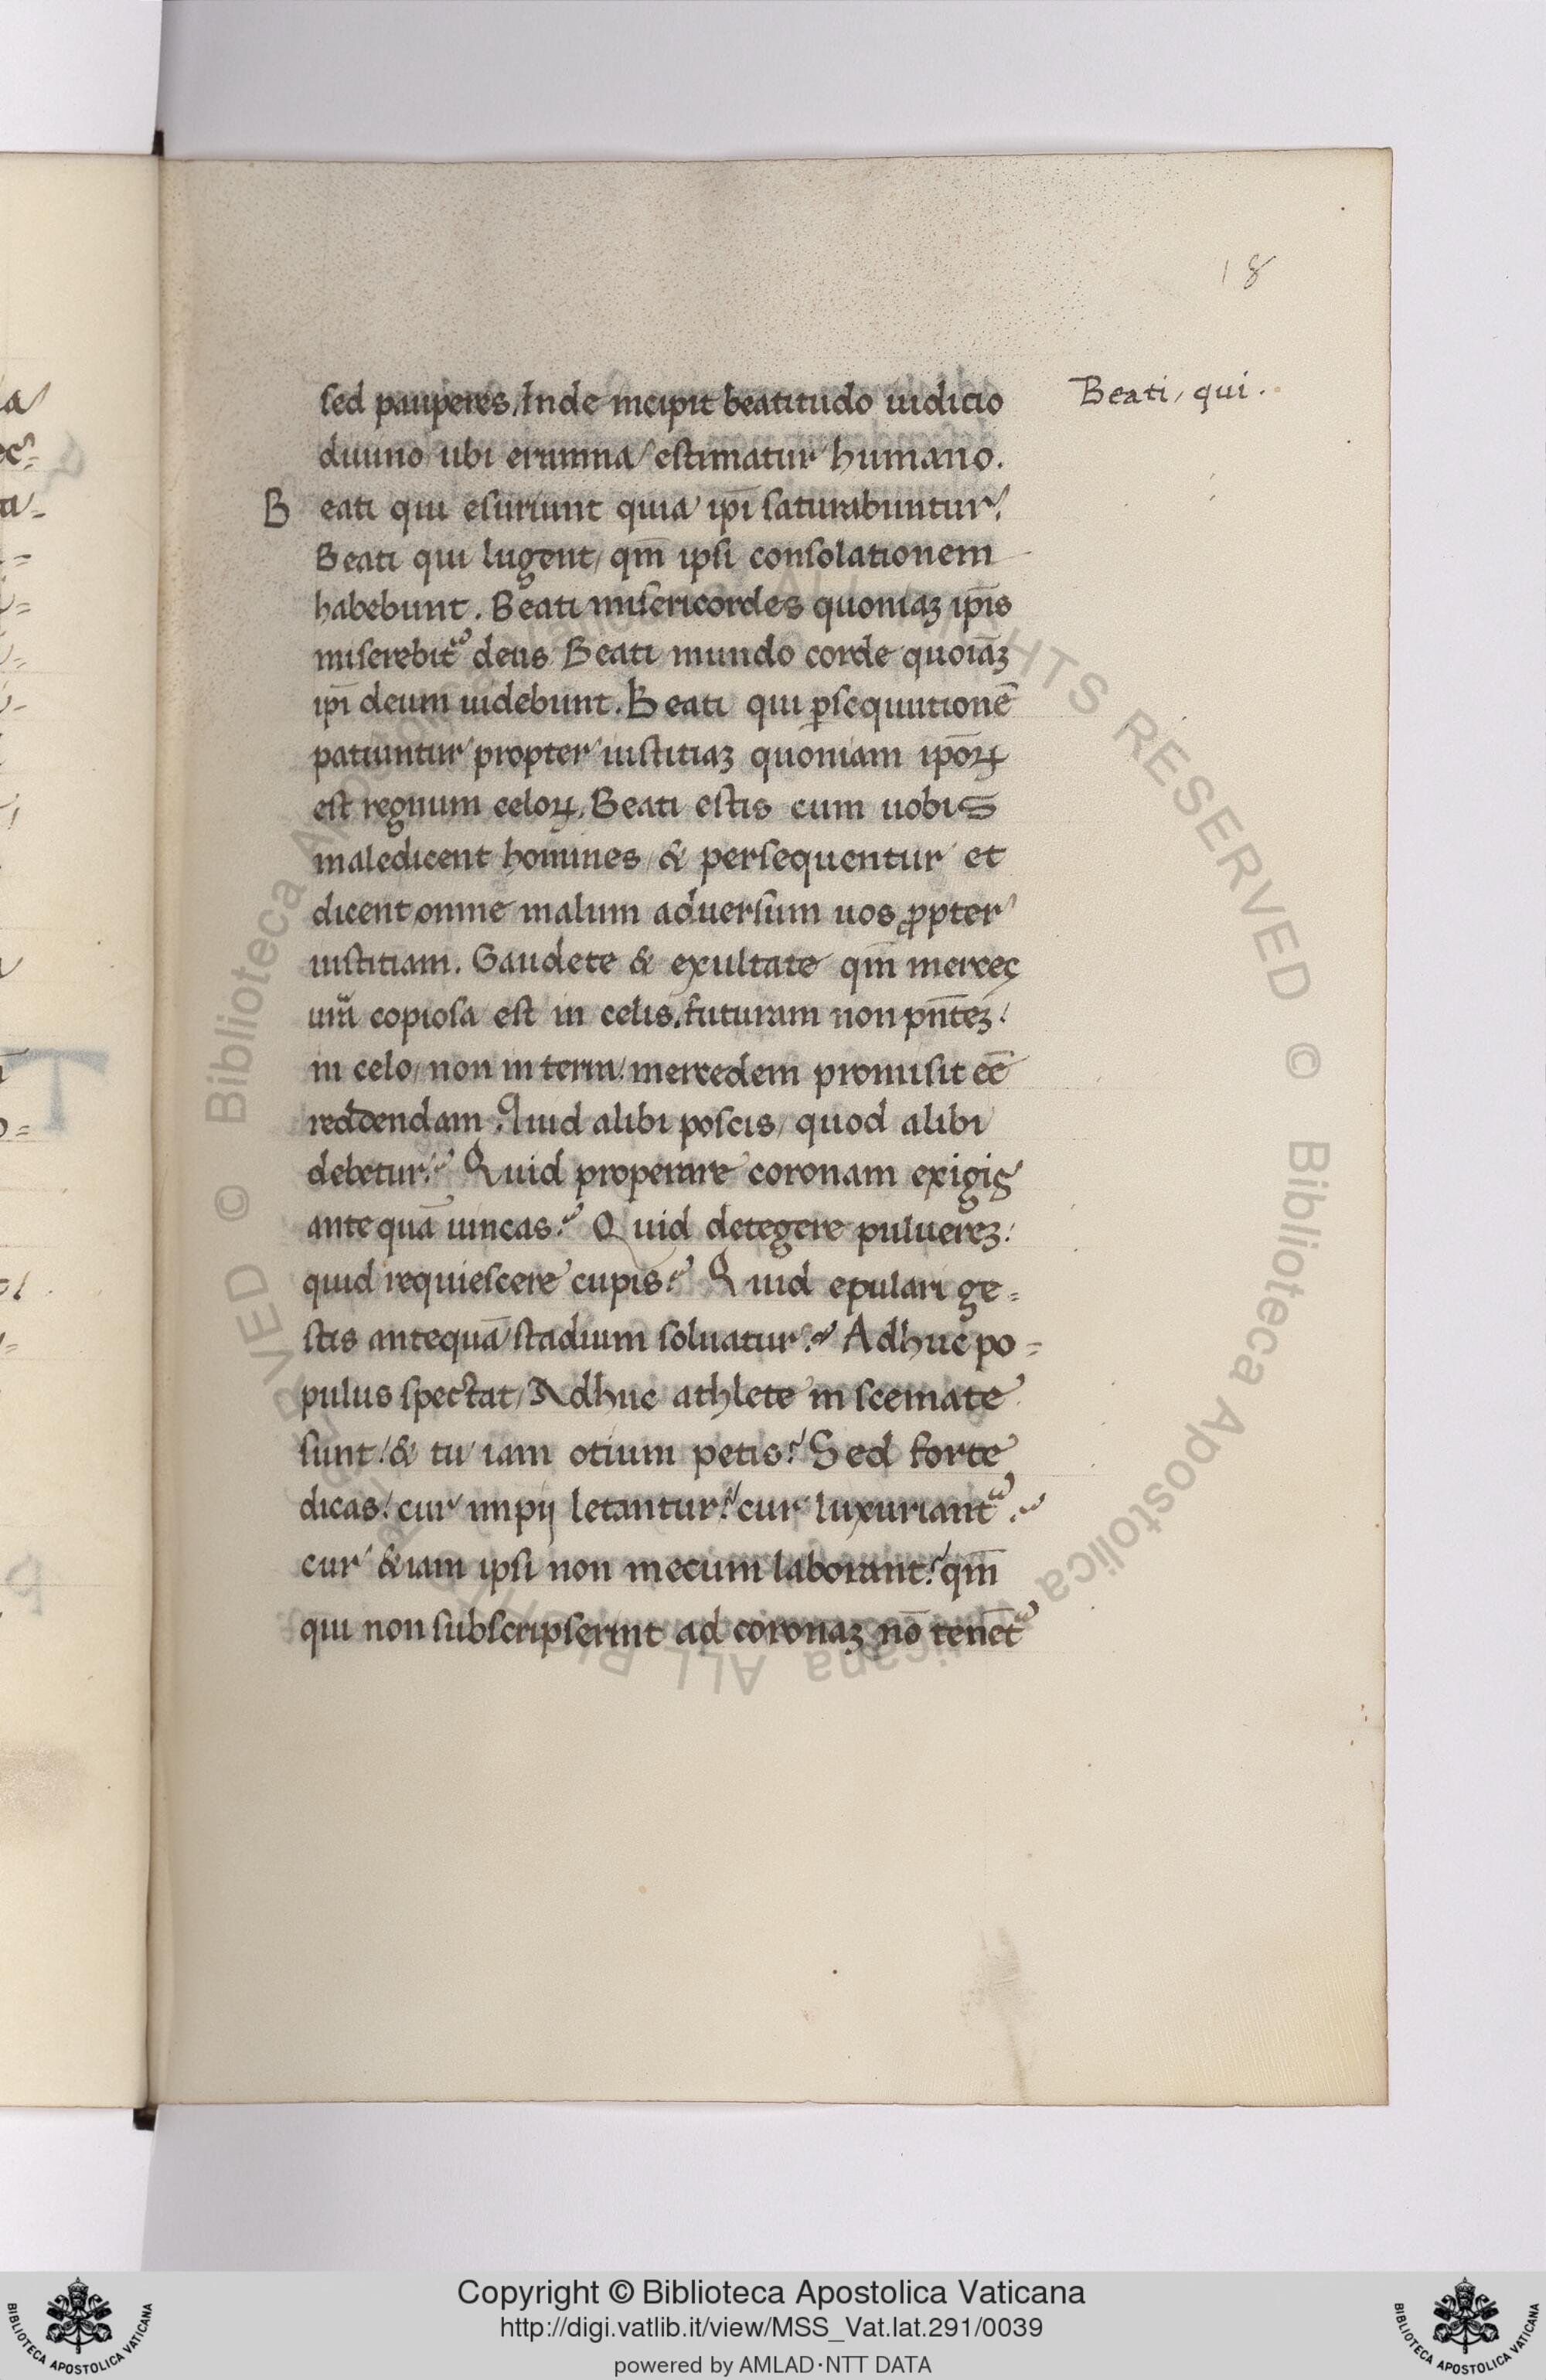 18
Beati, qui.
sed pauperes, Inde incipit beatitudo iudicio
diuino ubi erumna estimatur humano.
Beati qui esuriunt quia ip̄i saturabuntur.
Beati qui lugent, qm̄ ipsi consolationem
habebunt. Beati misericordes quoniaꝫ ip̄is
miserebit᷑ deus Beati mundo corde quoiāꝫ
ip̄i deum uidebunt. Beati qui ꝑsequutionē
patiuntur propter iustitiaꝫ quoniam ip̄oꝝ
est regnum celoꝝ. Beati estis cum uobis
maledicent homines & persequentur et
dicent omne malum aduersum uos ꝓpter
iustitiam. Gaudete & exultate qm̄ merces
ur̄a copiosa est in celis. futuram non pn̄teꝫ.
in celo, non in terra. mercedem promisit ēē
reddendam. Quid alibi poscis, quod alibi
debetur? Quid properare coronam exigis
ante quā uincas? Quid detegere puluereꝫ.
quid requiescere cupis? Quid epulari ge=
stis antequā stadium soluatur? Adhuc po=
pulus spectat, Adhuc athlete in scemate
sunt, & tu iam otium petis? Sed forte
dicas. cur impij letantur? cur luxuriant᷑?
cur &iam ipsi non mecum laborant? qm̄
qui non subscripserint ad coronaꝫ nō tenēt᷑
Copyright © Biblioteca Apostolica Vaticana
http://digi.vatlib.it/view/MSS_Vat.lat.291/0039
powered by AMLAD·NTT DATA
BIBLIOTECA APOSTOLICA VATICANA
BIBLIOTECA APOSTOLICA VATICANA